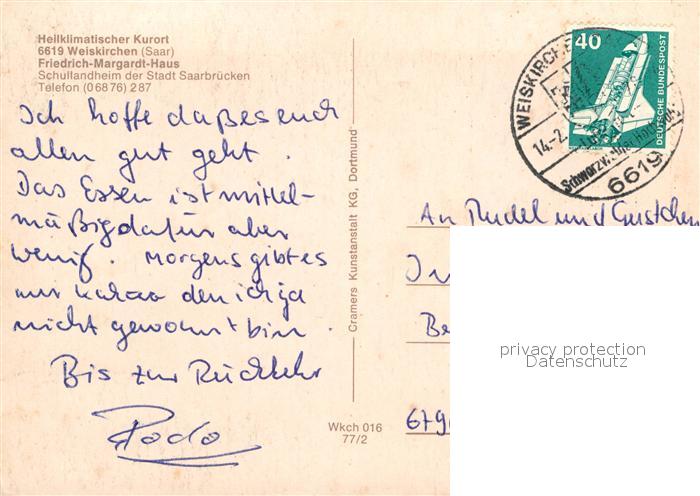 Heilklimatischer Kurort
6619 Weiskirchen (Saar)
Friedrich-Margardt-Haus
Schullandheim der Stadt Saarbrücken
Telefon (0 68 76) 2 87
Ich hoffe daß es euch
allen gut geht.
Das Essen ist mittel-
mäßig dafür aber
wenig. Morgens gibt es
nur Kakao den ich ja
nicht gewohnt bin.
Bis zur Rückkehr
Cramers Kunstanstalt KG, Dortmund
Wkch 016
77/2
40
DEUTSCHE BUNDESPOST
WEISKIRCHE
14.-2.
6619
An Rudel und
67
privacy protection
Datenschutz